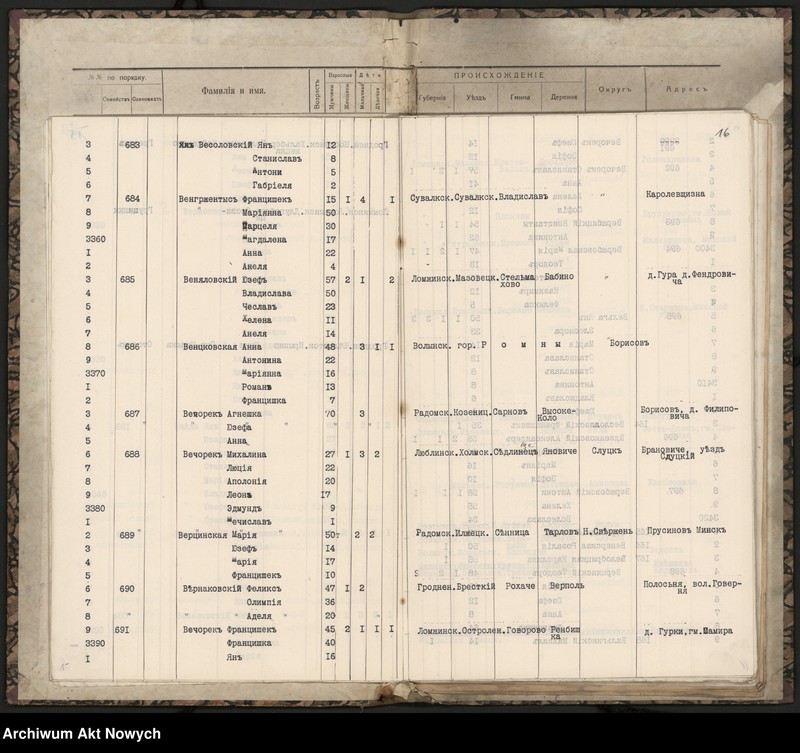 №№ по порядку.
Семействъ Одиночекъ
Фамилія и имя.
Возрастъ
Взрослые
Дѣти
Мужчины
Женщины
Мальчики
Дѣвочки
ПРОИСХОЖДЕНІЕ
Губернія Уѣздъ Гмина Деревня
Округъ
Адресъ
16
3 683 Весоловскій Янъ 12
4 Станиславъ 8
5 Антони 5
6 Габріеля 2
7 684 Венгржентисъ Францишекъ 15 I 4 I Сувалкск. Сувалкск. Владиславъ " Каролевщизна
8 " Маріянна 50
9 Марцеля 30
3360 Магдалена 17
I Анна 22
2 Анеля 4
3 685 Веняловскій Юзефъ 57 2 I 2 Ломжинск. Мазовецк. Стельма Бабино " д.Гура д.Фендрови-
хово ча
4 Владислава 50
5 Чеславъ 23
6 Хелена II
7 Анеля 14
8 686 Венцковская Анна 48 3 I I Волынск. гор. Р о м н ы Борисовъ
9 Антонина 22
3370 Маріянна 16
I Романъ 13
2 Францишка 7
3 687 Вечорекъ Агнешка 70 3 Радомск. Козениц. Сарновъ Высоке- Борисовъ, д. Филипо-
Коло вича
4 " Юзефа " "
5 Анна
6 688 Вечорекъ Михалина 27 I 3 2 Люблинск. Холмск. Сѣдлинецъ Яновиче Слуцкъ Брановиче, уѣздъ
Слуцкій
7 Люція 22
8 Аполонія 20
9 Леонъ 17
3380 Эдмундъ 9
I Мечиславъ I
2 689 Верцинская Марія 50 2 2 Радомск. Илжецк. Сѣнница Тарловъ Н.Свѣржень Прусиновъ Минскъ
3 Юзефъ 14
4 Марія 17
5 Францишекъ 10
6 690 Вѣрнаковскій Феликсъ 47 I 2 Гроднен. Бресткій Рохаче Верполь Полосьня, вол.Говер-
ня
7 Олимпія 36
8 " " Аделя 20
9 691 Вечорекъ Францишекъ 45 2 I I I Ломжинск. Остролен. Говорово Ренбиш д. Гурки, гм. Шамира
ка
3390 Францишка 40
I Янъ 16
Archiwum Akt Nowych